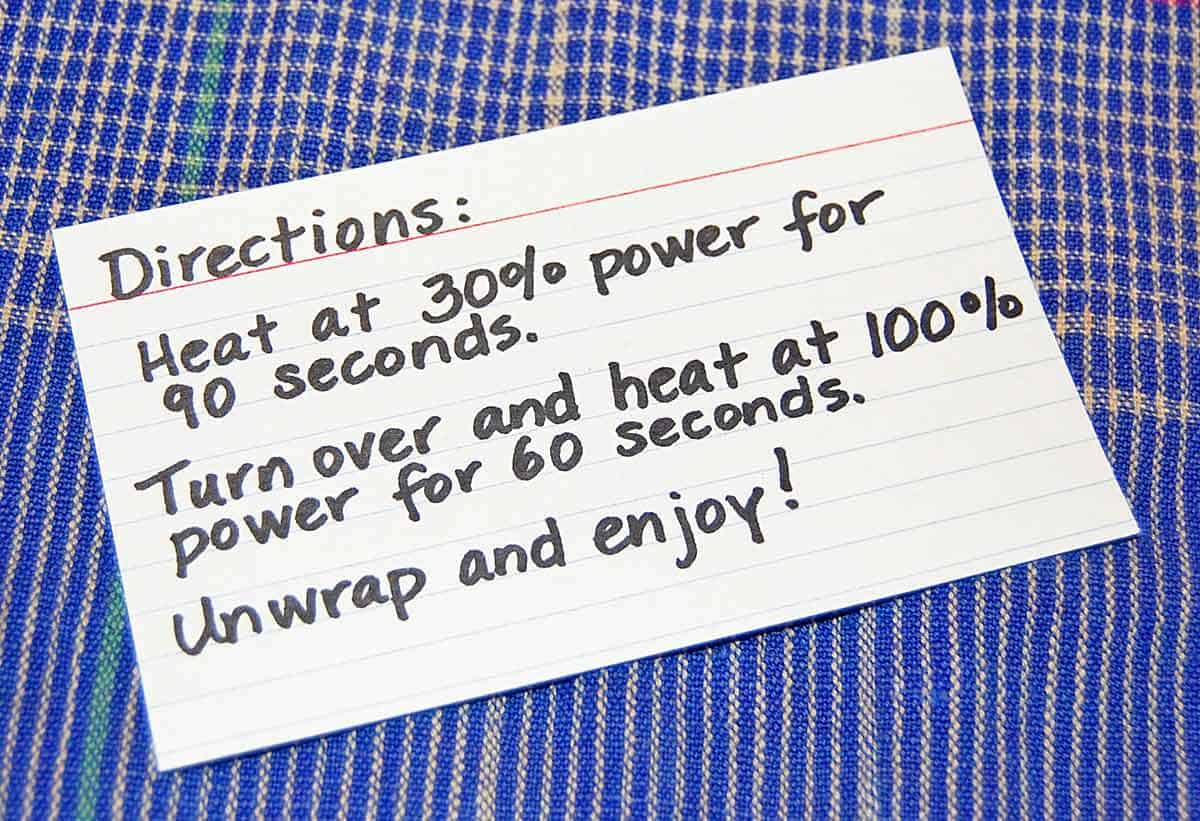 Directions:
Heat at 30% power for
90 seconds.
Turn over and heat at 100%
power for 60 seconds.
Unwrap and enjoy!